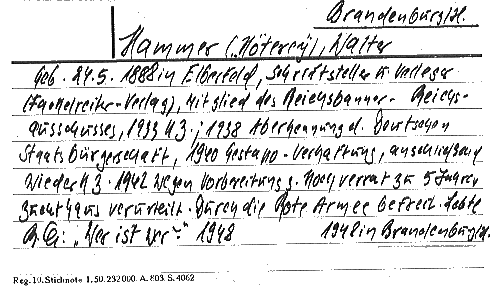 Brandenburg/H.
Hammer („Hösterey), Walter
Geb. 24.5.1888 in Elberfeld, Schriftsteller u. Verleger
(Fackelreiter-Verlag), Mitglied des Reichsbanner- Reichs-
ausschusses, 1933 K3.; 1938 Aberkennung d. Deutschen
Staatsbürgerschaft, 1940 Gestapo-Verhaftung, anschließend
wieder K3. 1942 wegen Vorbereitung z. Hochverrat zu 5 Jahren
Zuchthaus verurteilt. Durch die Rote Armee befreit. Lebte
B.G.: „Wer ist wer" 1948 1948 in Brandenburg/H.
Reg. 10. Stichnote 1. 50. 232000. A. 803. S. 4062